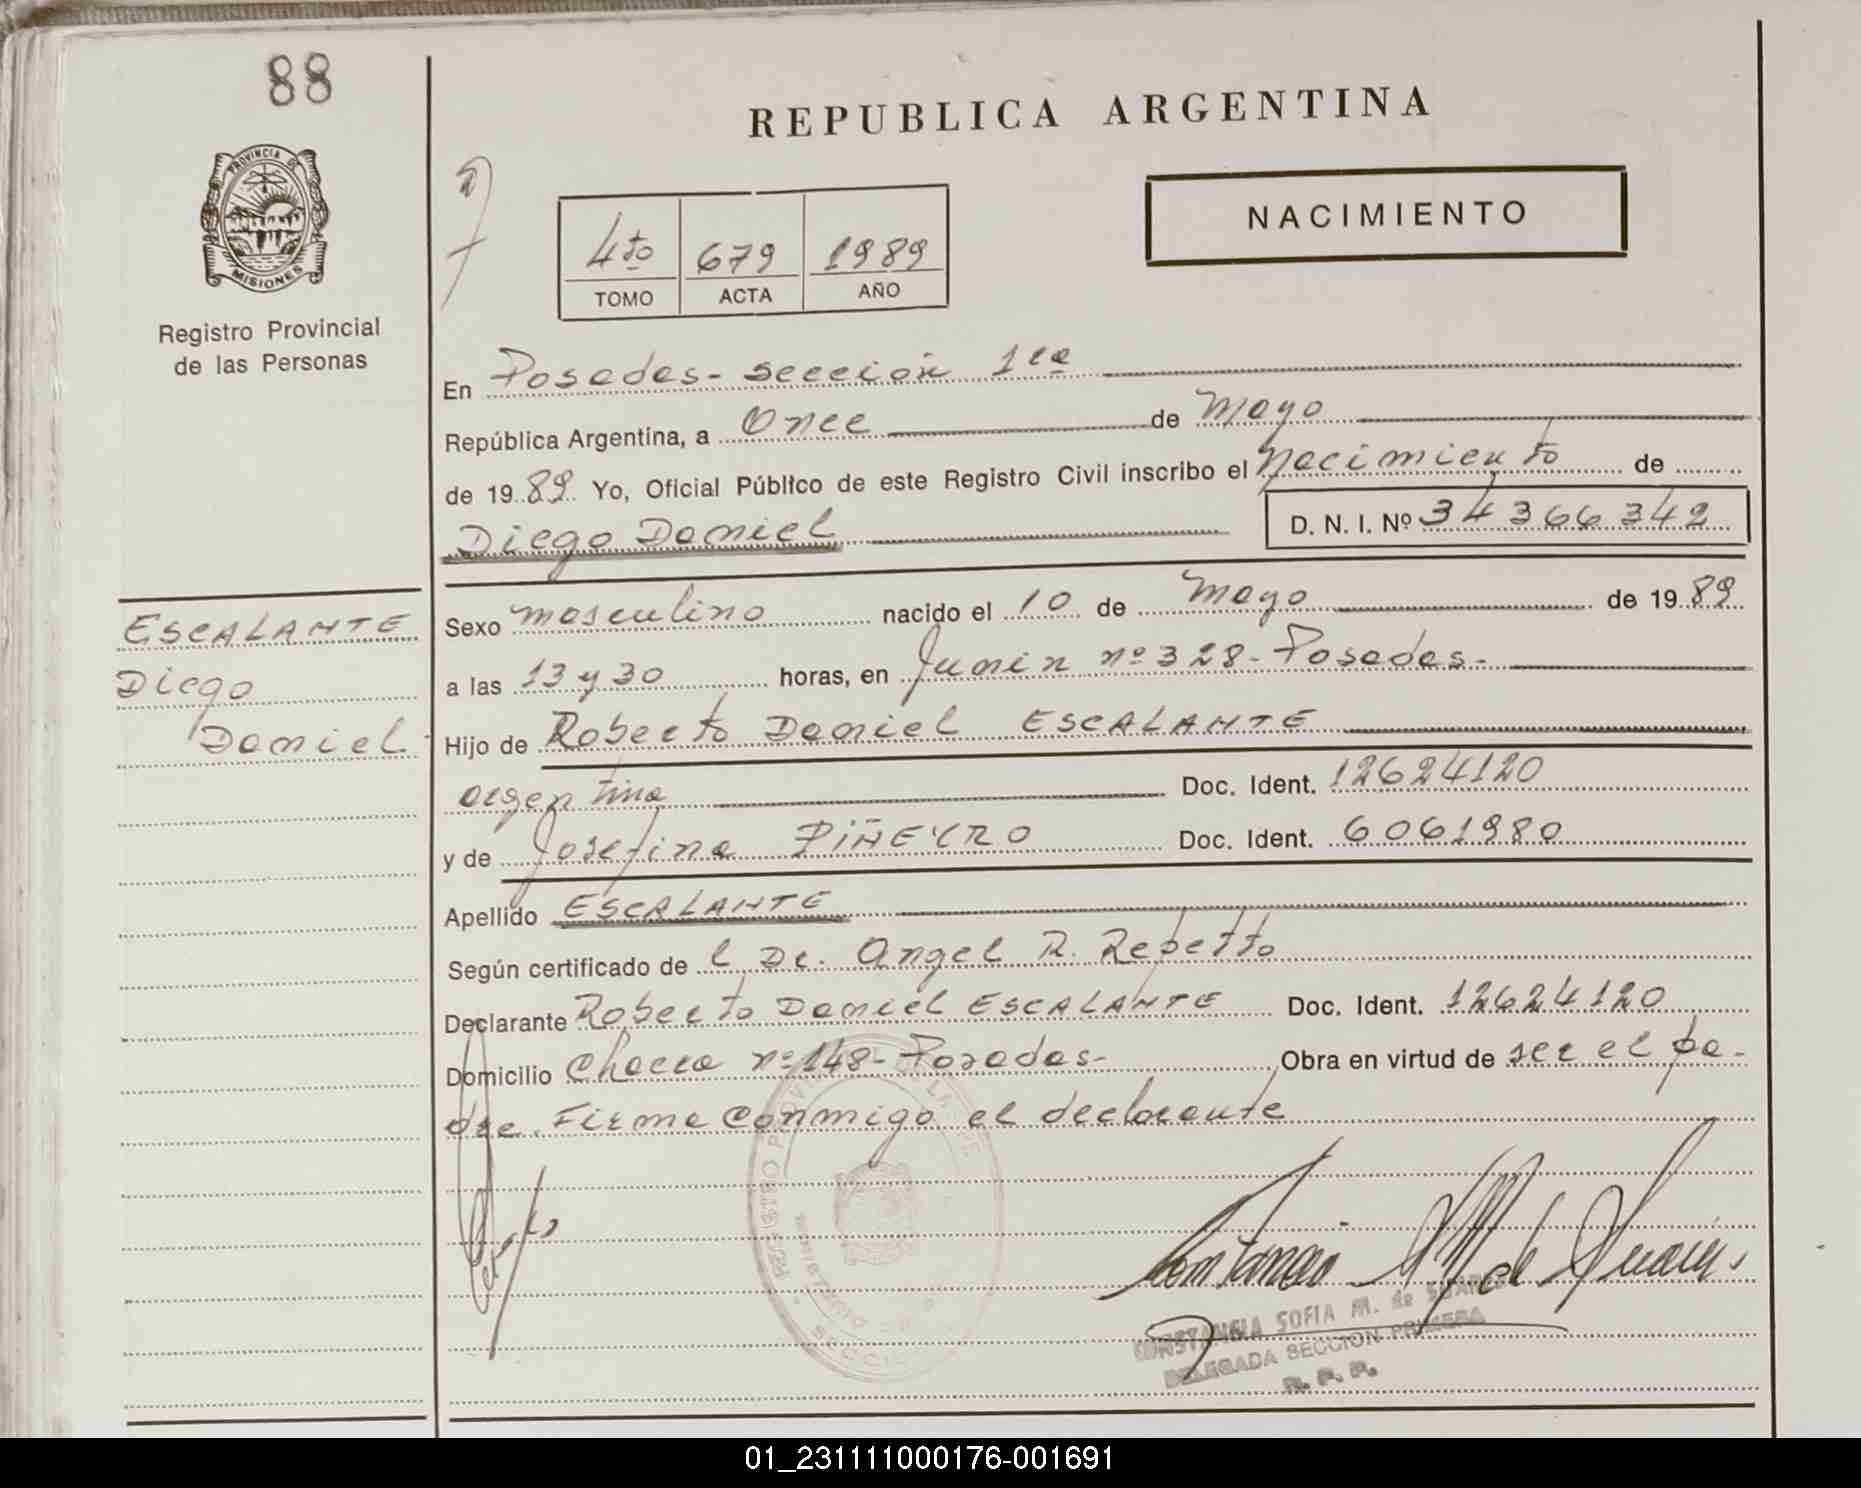 88
REPUBLICA ARGENTINA
PROVINCIA DE
MISIONES
Registro Provincial
de las Personas
4to 679 1989
TOMO ACTA AÑO
NACIMIENTO
En Posadas - Sección 1ra
República Argentina, a Once de Mayo
de 1989 Yo, Oficial Público de este Registro Civil inscribo el Nacimiento de
Diego Daniel D. N. I. Nº 34366342
ESCALANTE
Diego
Daniel
Sexo masculino nacido el 10 de Mayo de 1989
a las 13 y 30 horas, en Junin nº 328 - Posadas -
Hijo de Roberto Daniel ESCALANTE
argentina Doc. Ident. 12624120
y de Josefina PIÑEYRO Doc. Ident. 6061980
Apellido ESCALANTE
Según certificado de l Dr. Angel R. Repetto
Declarante Roberto Daniel ESCALANTE Doc. Ident. 12624120
Domicilio Chacra nº 148 - Posadas - Obra en virtud de ser el pa-
dre. Firma conmigo el declarante
CONSTANCIA SOFIA M. de SUAREZ
DELEGADA SECCION PRIMERA
R. P. P.
01_231111000176-001691